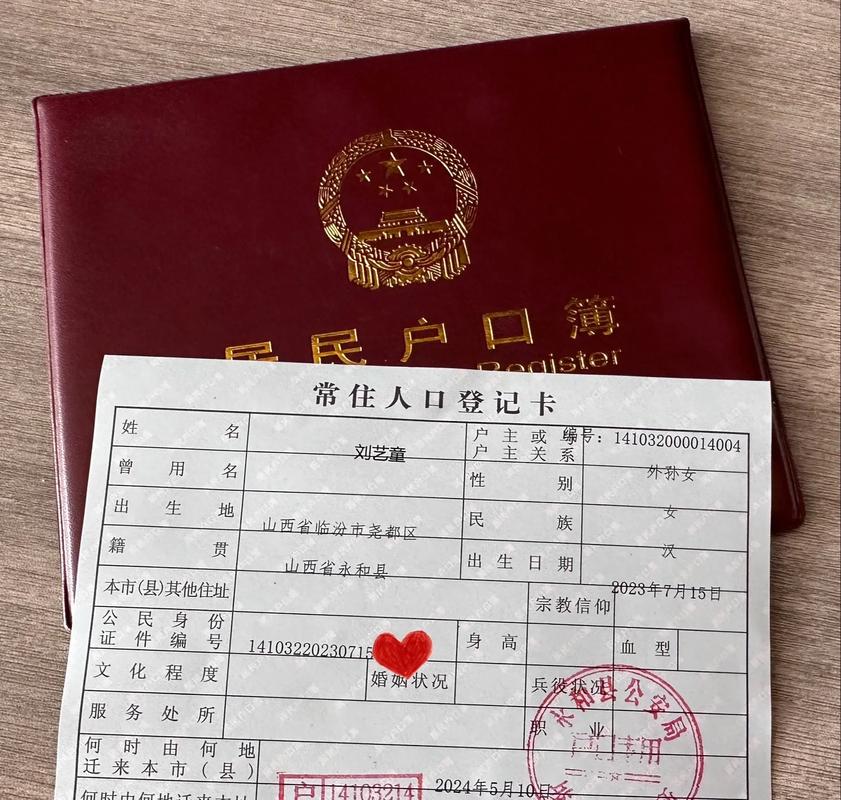 居民户口簿
Register
常住人口登记卡
编号：141032000014004
姓名 刘艺童 户主或与户主关系 外孙女
曾用名 性别 女
出生地 山西省临汾市尧都区 民族 汉
籍贯 山西省永和县 出生日期 2023年7月15日
本市(县)其他住址 宗教信仰
公民身份证件编号 14103220230715 身高 血型
文化程度 婚姻状况 兵役状况
服务处所 职业
何时由何地迁来本市(县)
永和县公安局
户 14103214
2024年5月10日